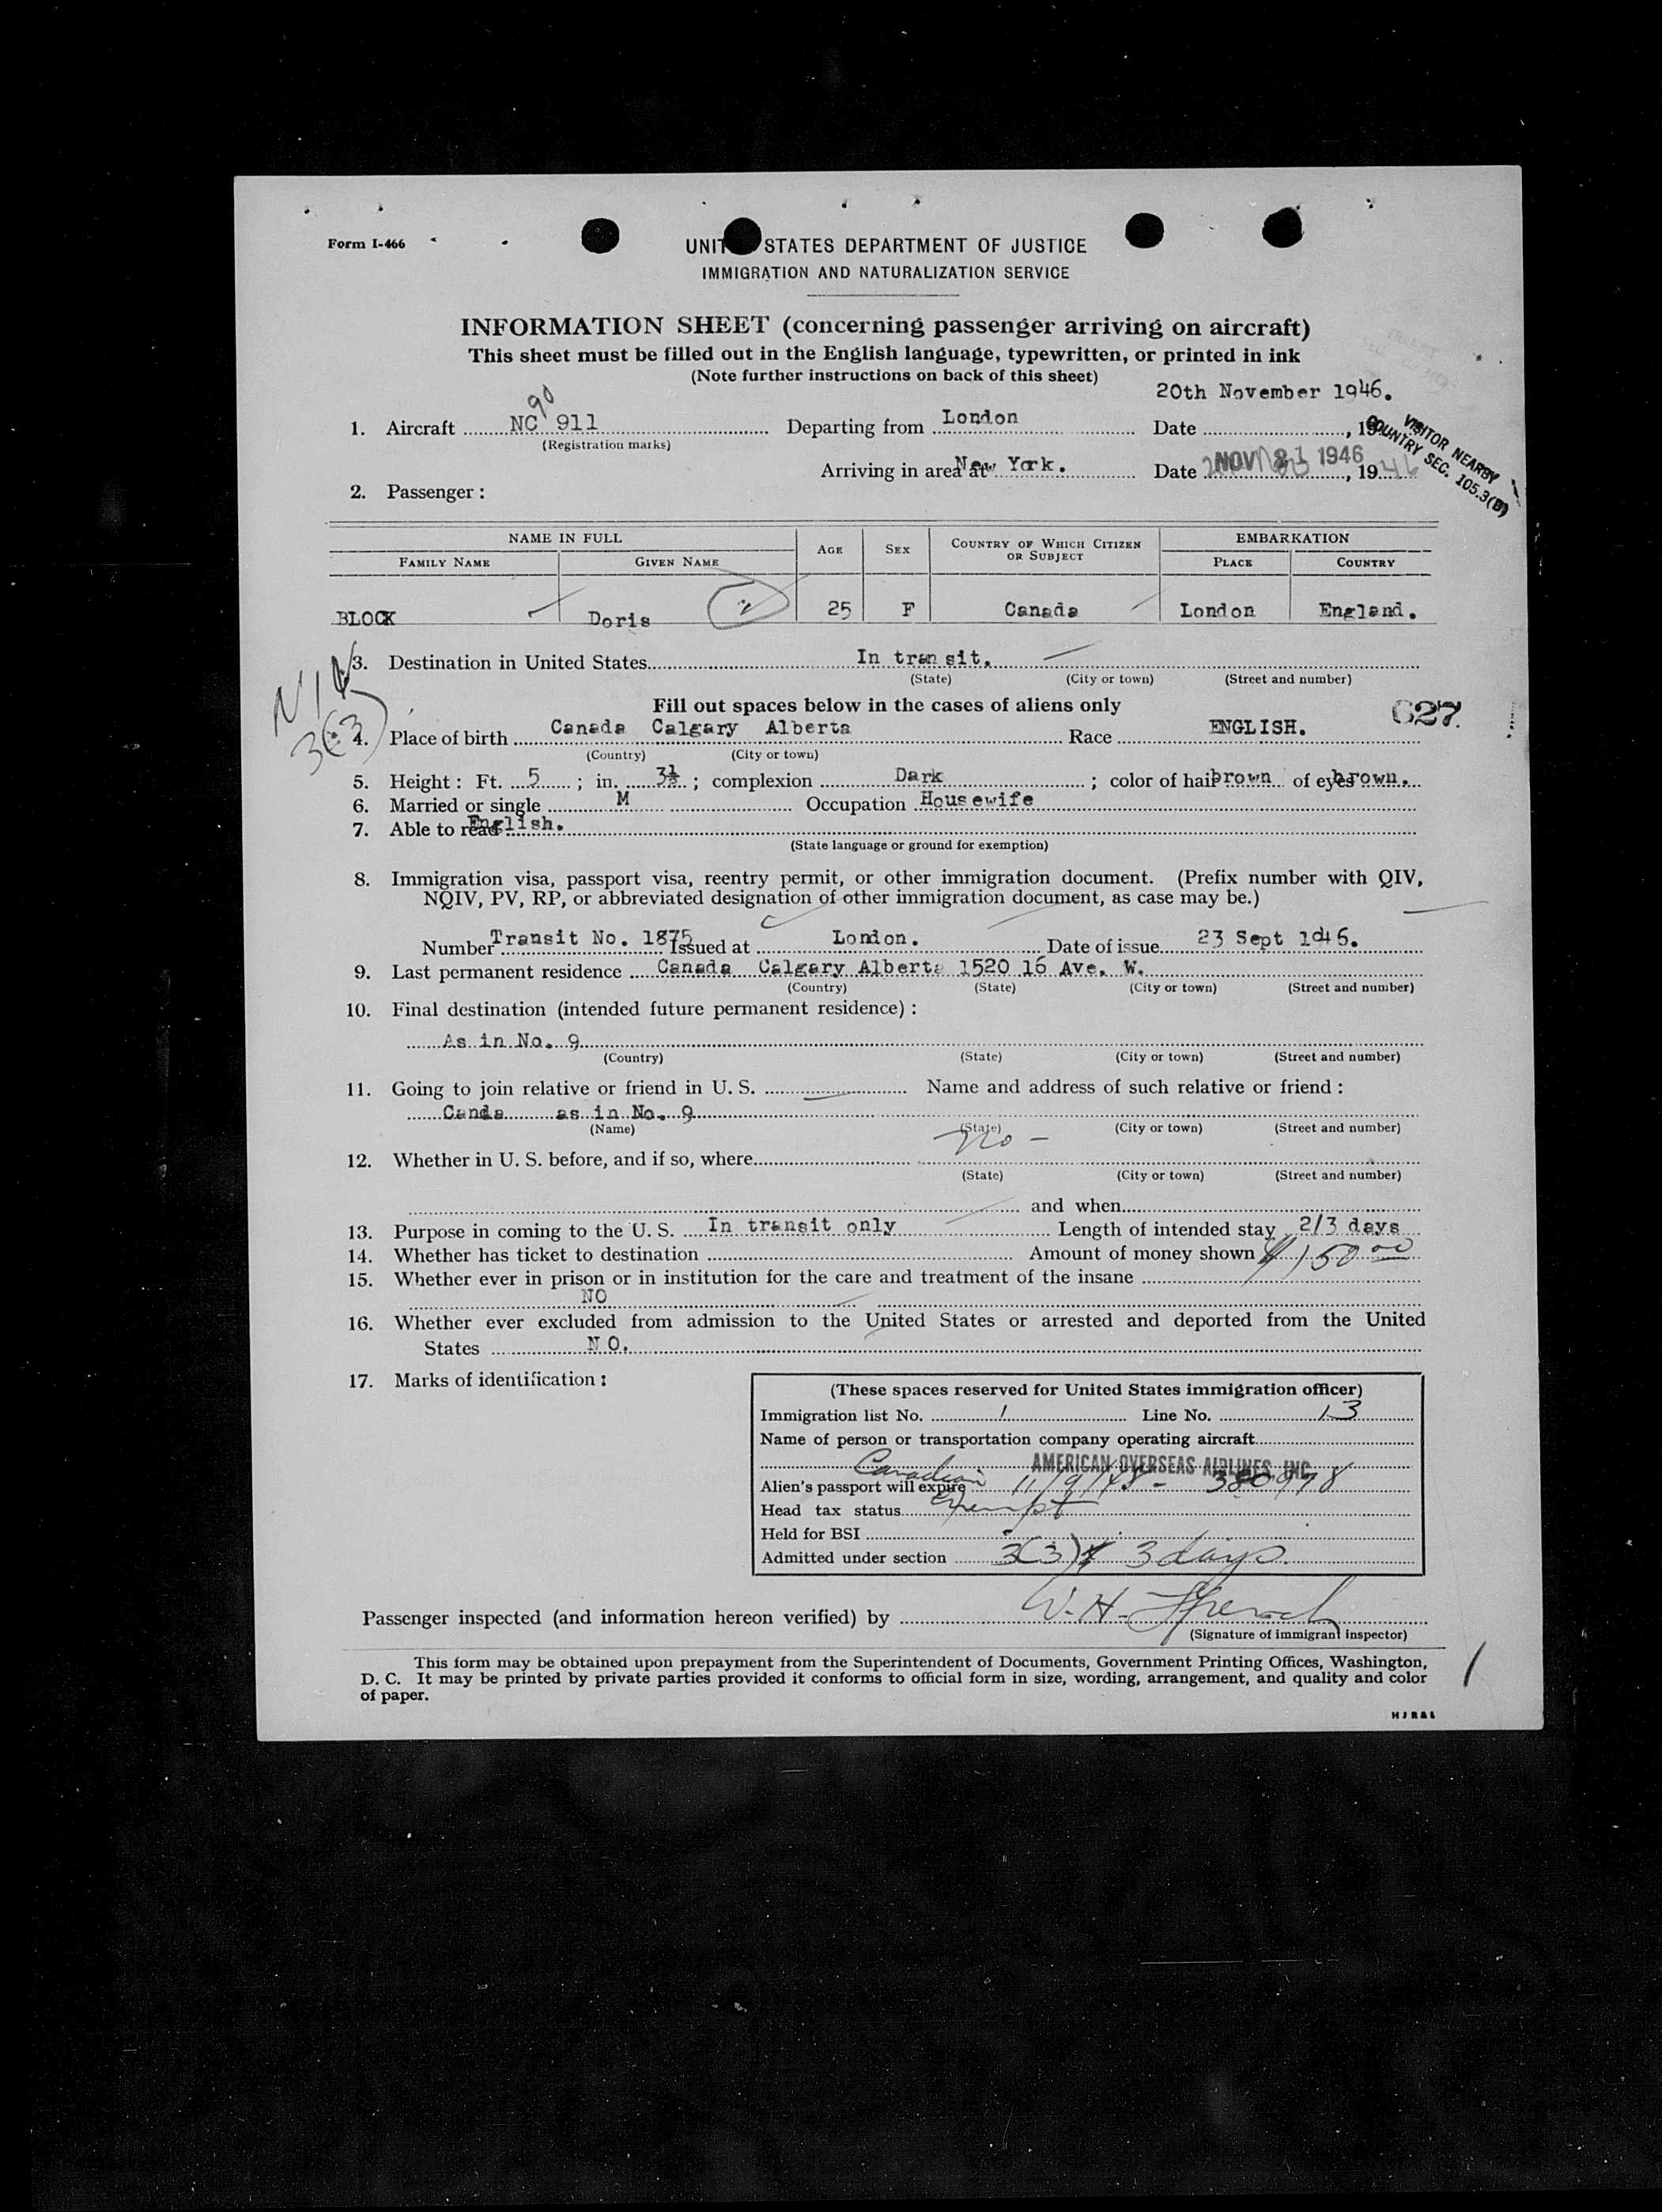 Form I-466
UNITED STATES DEPARTMENT OF JUSTICE
IMMIGRATION AND NATURALIZATION SERVICE
INFORMATION SHEET (concerning passenger arriving on aircraft)
This sheet must be filled out in the English language, typewritten, or printed in ink
(Note further instructions on back of this sheet)
20th November 1946.
90
1. Aircraft NC 911 Departing from London Date , 19
(Registration marks)
VISITOR NEARBY
COUNTRY SEC. 105.3(B)
Arriving in area at New York. Date NOV 21 1946, 1946
2. Passenger:
NAME IN FULL AGE SEX COUNTRY OF WHICH CITIZEN OR SUBJECT EMBARKATION
FAMILY NAME GIVEN NAME PLACE COUNTRY
BLOCK Doris 2 25 F Canada London England.
3. Destination in United States In transit.
(State) (City or town) (Street and number)
Fill out spaces below in the cases of aliens only
627
4. Place of birth Canada Calgary Alberta Race ENGLISH.
(Country) (City or town)
5. Height: Ft. 5; in. 3½; complexion Dark; color of hair brown of eyes brown.
6. Married or single M Occupation Housewife
7. Able to read English.
(State language or ground for exemption)
8. Immigration visa, passport visa, reentry permit, or other immigration document. (Prefix number with QIV,
NQIV, PV, RP, or abbreviated designation of other immigration document, as case may be.)
Number Transit No. 1875 Issued at London. Date of issue 23 Sept 1946.
9. Last permanent residence Canada Calgary Alberta 1520 16 Ave. W.
(Country) (State) (City or town) (Street and number)
10. Final destination (intended future permanent residence):
As in No. 9
(Country) (State) (City or town) (Street and number)
11. Going to join relative or friend in U. S. Name and address of such relative or friend:
Canda as in No. 9
(Name) (State) (City or town) (Street and number)
no -
12. Whether in U. S. before, and if so, where
(State) (City or town) (Street and number)
and when
13. Purpose in coming to the U. S. In transit only Length of intended stay 2/3 days
14. Whether has ticket to destination Amount of money shown $150 00
15. Whether ever in prison or in institution for the care and treatment of the insane
NO
16. Whether ever excluded from admission to the United States or arrested and deported from the United
States NO.
17. Marks of identification:
(These spaces reserved for United States immigration officer)
Immigration list No. 1 Line No. 13
Name of person or transportation company operating aircraft
AMERICAN OVERSEAS AIRLINES, INC
Canadian
Alien's passport will expire 11/9/48 - 380978
Head tax status Exempt
Held for BSI
Admitted under section 3(3) 3 days
Passenger inspected (and information hereon verified) by W. H.
(Signature of immigrant inspector)
This form may be obtained upon prepayment from the Superintendent of Documents, Government Printing Offices, Washington,
D. C. It may be printed by private parties provided it conforms to official form in size, wording, arrangement, and quality and color
of paper.
HJR&L